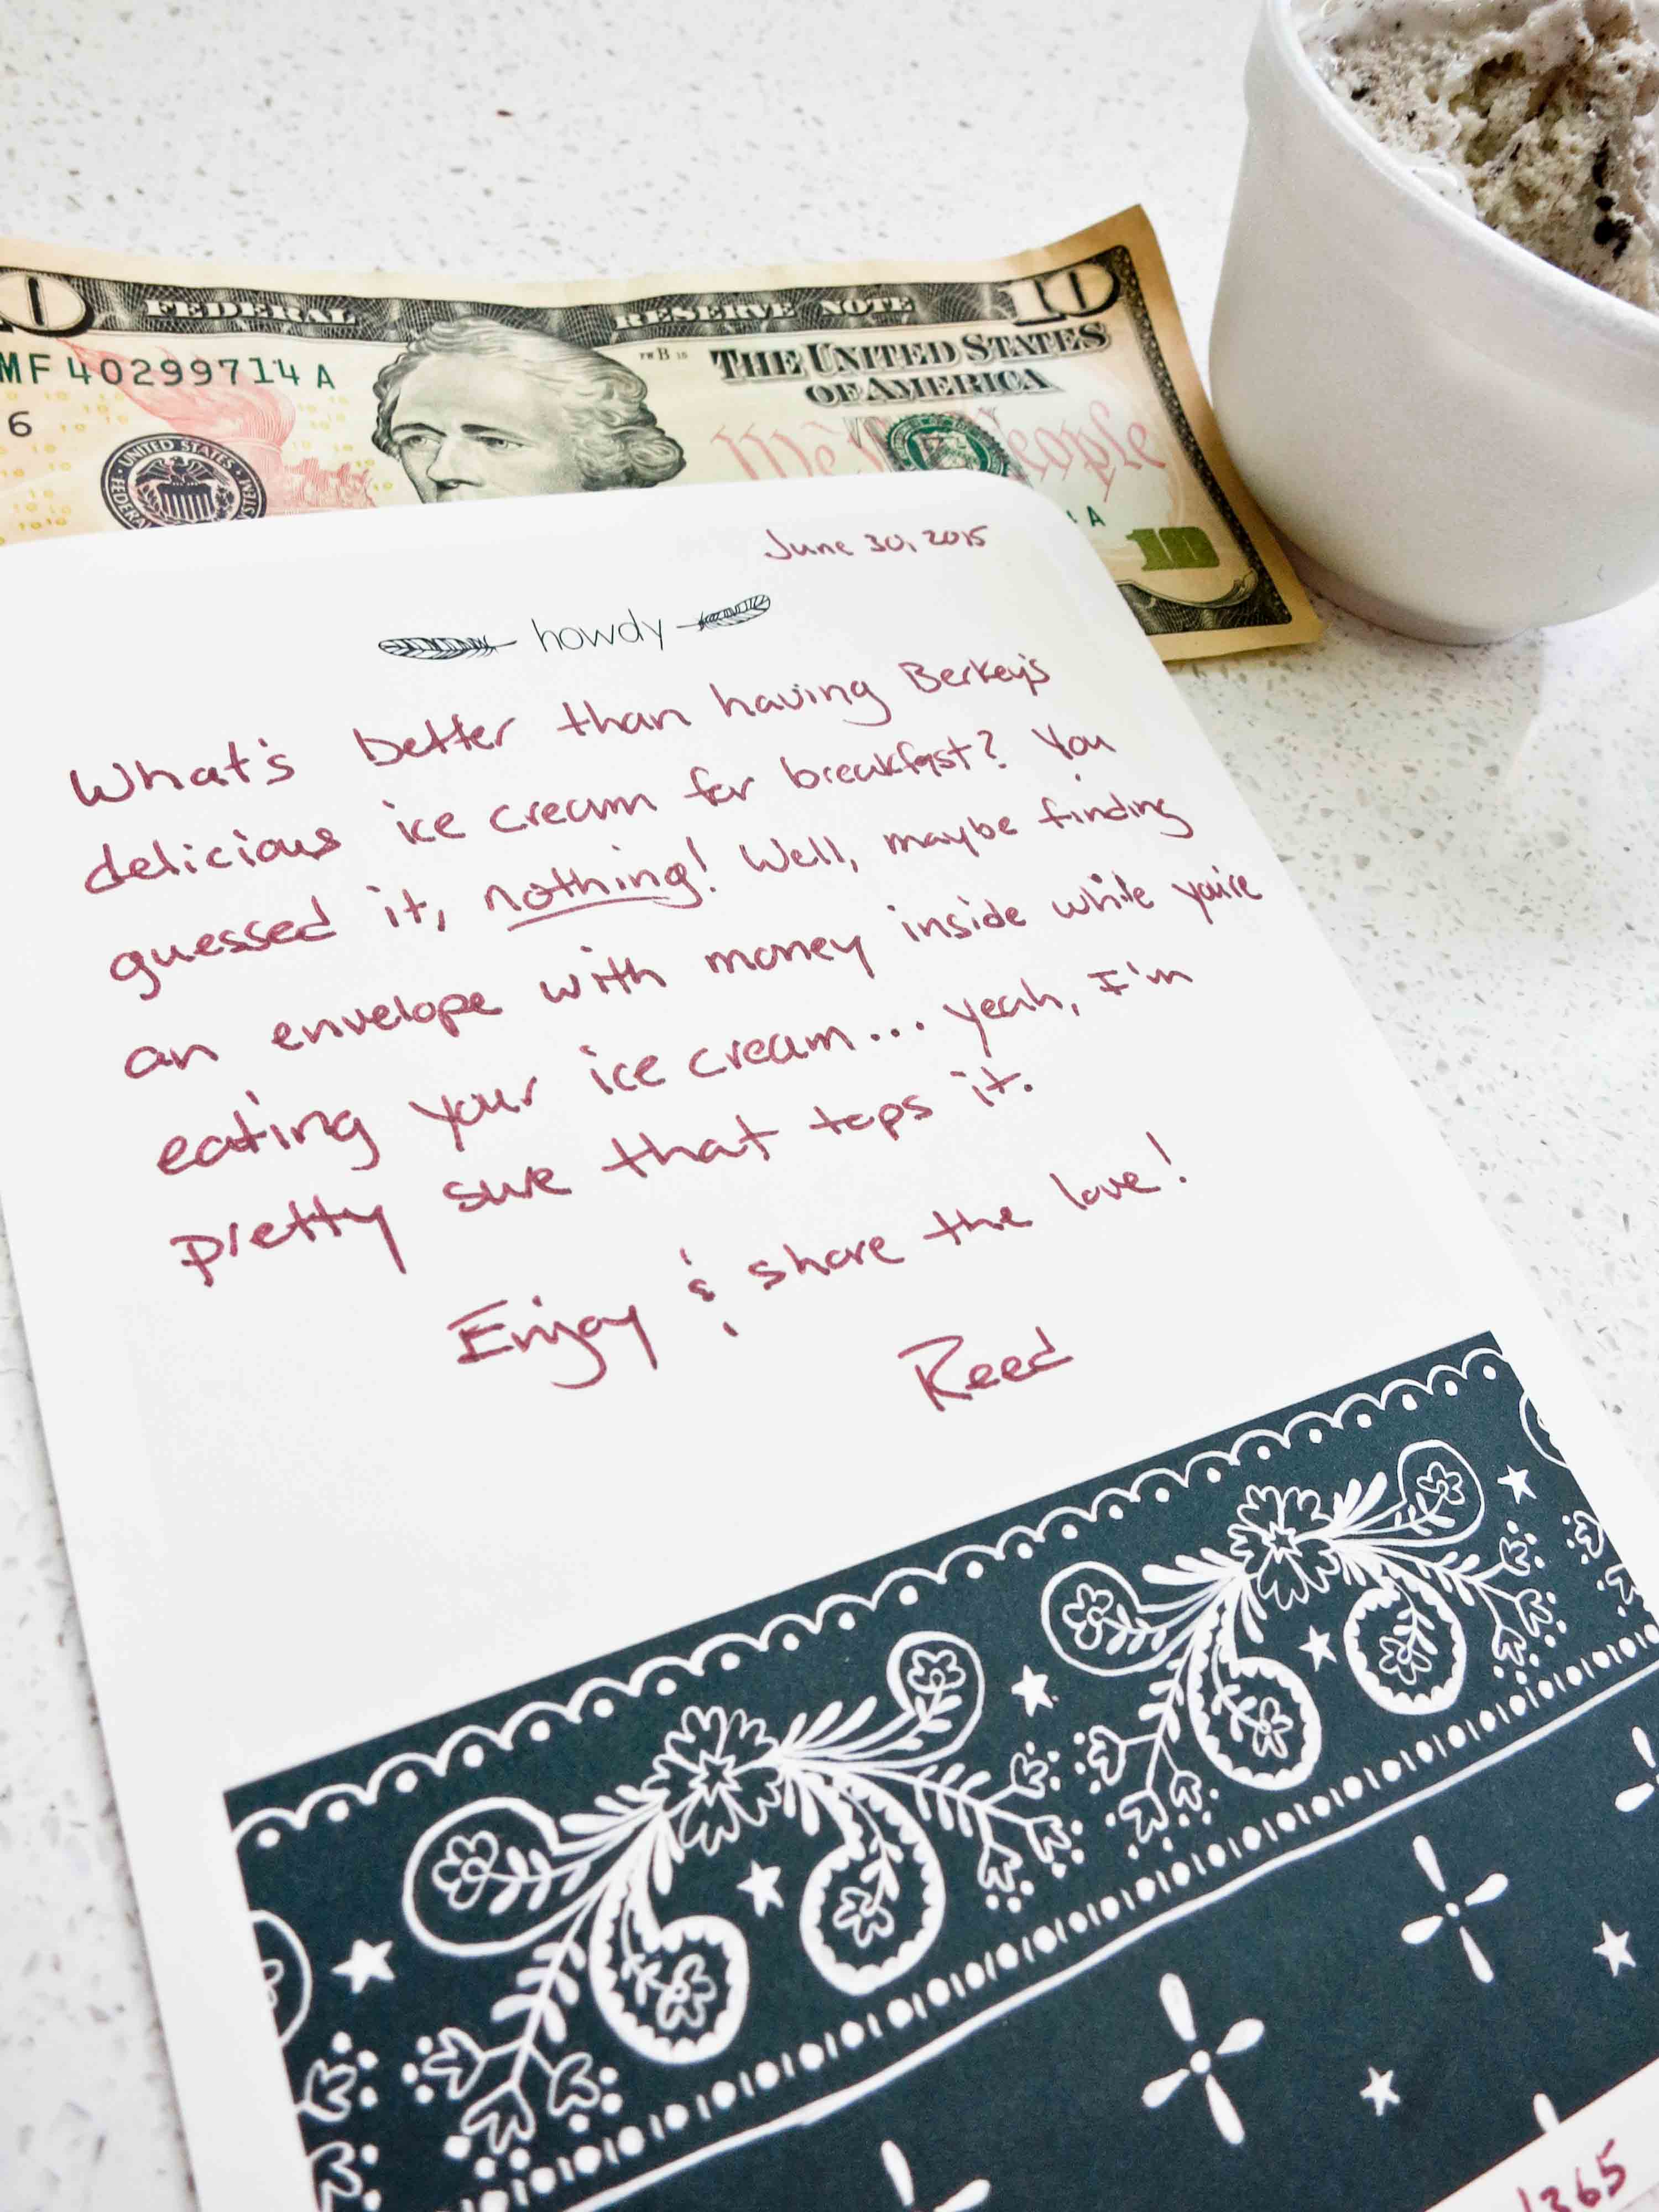 10 FEDERAL RESERVE NOTE 10
MF 40299714 A
THE UNITED STATES
OF AMERICA
6
UNITED STATES
FEDERAL
We People
A
10
June 30, 2015
howdy
What's better than having Berkey's
delicious ice cream for breakfast? You
guessed it, nothing! Well, maybe finding
an envelope with money inside while you're
eating your ice cream... yeah, I'm
pretty sure that tops it.
Enjoy & share the love!
Reed
365